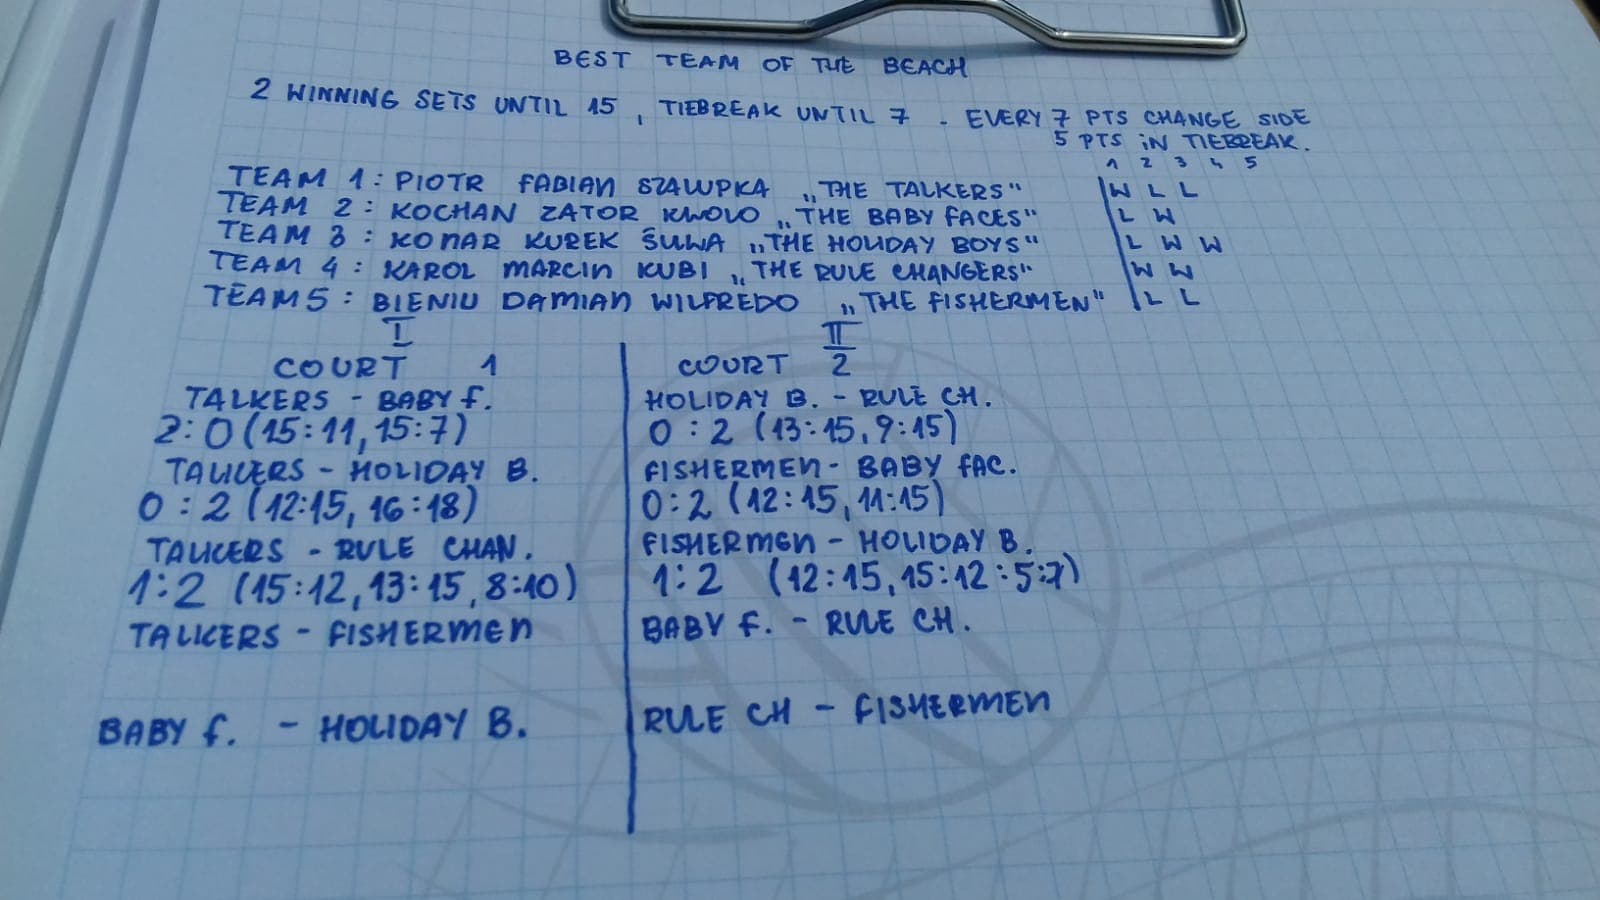 BEST TEAM OF THE BEACH
2 WINNING SETS UNTIL 15, TIEBREAK UNTIL 7 - EVERY 7 PTS CHANGE SIDE
5 PTS IN TIEBREAK.
1 2 3 4 5
TEAM 1: PIOTR FABIAN SZAWPKA „THE TALKERS" W L L
TEAM 2: KOCHAN ZATOR KWOLO „THE BABY FACES" L W
TEAM 3: KOMAR KUREK ŚLIWA „THE HOLIDAY BOYS" L W W
TEAM 4: KAROL MARCIN KUBI „THE RULE CHANGERS" W W
TEAM 5: BIENIU DAMIAN WILFREDO „THE FISHERMEN" L L
I
COURT 1
TALKERS - BABY F.
2:0 (15:11, 15:7)
TALKERS - HOLIDAY B.
0:2 (12:15, 16:18)
TALKERS - RULE CHAN.
1:2 (15:12, 13:15, 8:10)
TALKERS - FISHERMEN
BABY F. - HOLIDAY B.
II
COURT 2
HOLIDAY B. - RULE CH.
0:2 (13:15, 9:15)
FISHERMEN - BABY FAC.
0:2 (12:15, 11:15)
FISHERMEN - HOLIDAY B.
1:2 (12:15, 15:12:5:7)
BABY F. - RULE CH.
RULE CH - FISHERMEN